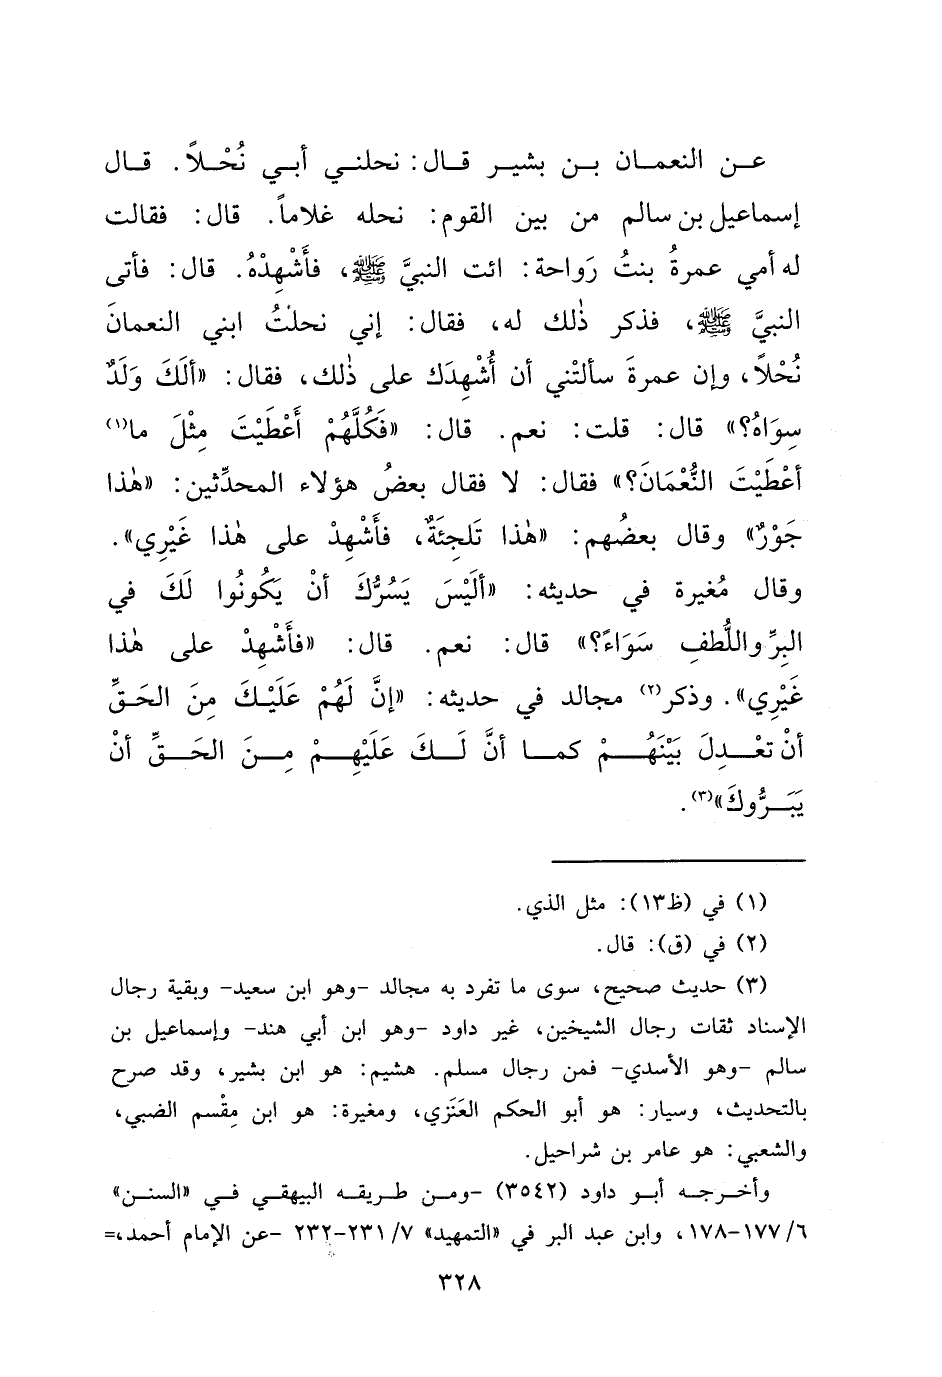 عـن النعمـان بـن بشيـر قـال: نحلنـي أبـي نُحْـلاً. قـال
إسماعيل بن سالم من بين القوم: نحله غلاماً. قال: فقالت
له أمي عمرةُ بنتُ رَواحة: ائت النبيَّ ﷺ، فأَشْهِدْهُ. قال: فأتى
النبيَّ ﷺ، فذكر ذٰلك له، فقال: إني نحلْتُ ابني النعمانَ
نُحْلاً، وإن عمرةَ سألتْني أن أُشْهِدَك على ذٰلك، فقال: «ألَكَ وَلَدٌ
سِوَاهُ؟» قال: قلت: نعم. قال: «فَكُلَّهُمْ أَعْطَيْتَ مِثْلَ ما(١)
أعْطَيْتَ النُّعْمَانَ؟» فقال: لا فقال بعضُ هؤلاء المحدِّثين: «هٰذا
جَوْرٌ» وقال بعضُهم: «هٰذا تَلجِئَةٌ، فأَشْهِدْ على هٰذا غَيْرِي».
وقال مُغيرة في حديثه: «أَلَيْسَ يَسُرُّكَ أنْ يَكُونُوا لَكَ في
البِرِّ واللُّطفِ سَوَاءً؟» قال: نعم. قال: «فأَشْهِدْ على هٰذا
غَيْرِي». وذكر(٢) مجالد في حديثه: «إنَّ لَهُمْ عَلَيْكَ مِنَ الحَقِّ
أنْ تعْدِلَ بَيْنَهُمْ كما أنَّ لَكَ عَلَيْهِمْ مِنَ الحَقِّ أنْ
يَبَرُّوكَ»(٣).
(١) في (ظ١٣): مثل الذي.
(٢) في (ق): قال.
(٣) حديث صحيح، سوى ما تفرد به مجالد -وهو ابن سعيد- وبقية رجال
الإسناد ثقات رجال الشيخين، غير داود -وهو ابن أبي هند- وإسماعيل بن
سالم -وهو الأسدي- فمن رجال مسلم. هشيم: هو ابن بشير، وقد صرح
بالتحديث، وسيار: هو أبو الحكم العَنَزي، ومغيرة: هو ابن مِقْسم الضبي،
والشعبي: هو عامر بن شراحيل.
وأخرجه أبو داود (٣٥٤٢) -ومن طريقه البيهقي في «السنن»
٦/ ١٧٧-١٧٨، وابن عبد البر في «التمهيد» ٧/ ٢٣١-٢٣٢ -عن الإمام أحمد،=
٣٢٨